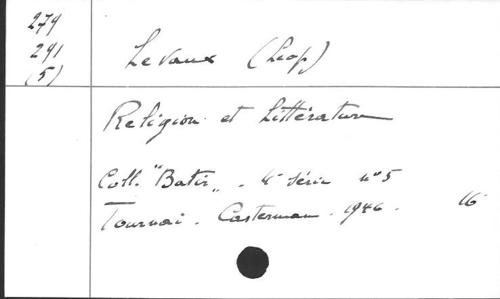 279
291
(5)
Levaux (Léop)
Religion et Littérature
Coll. "Batir„ . 4e série n° 5
Tournai . Casterman . 1946 . 16